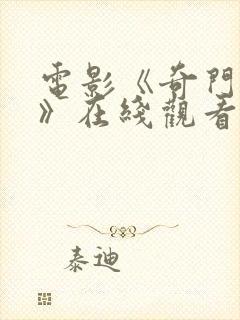 電影《奇門
》在綫觀看
泰迪